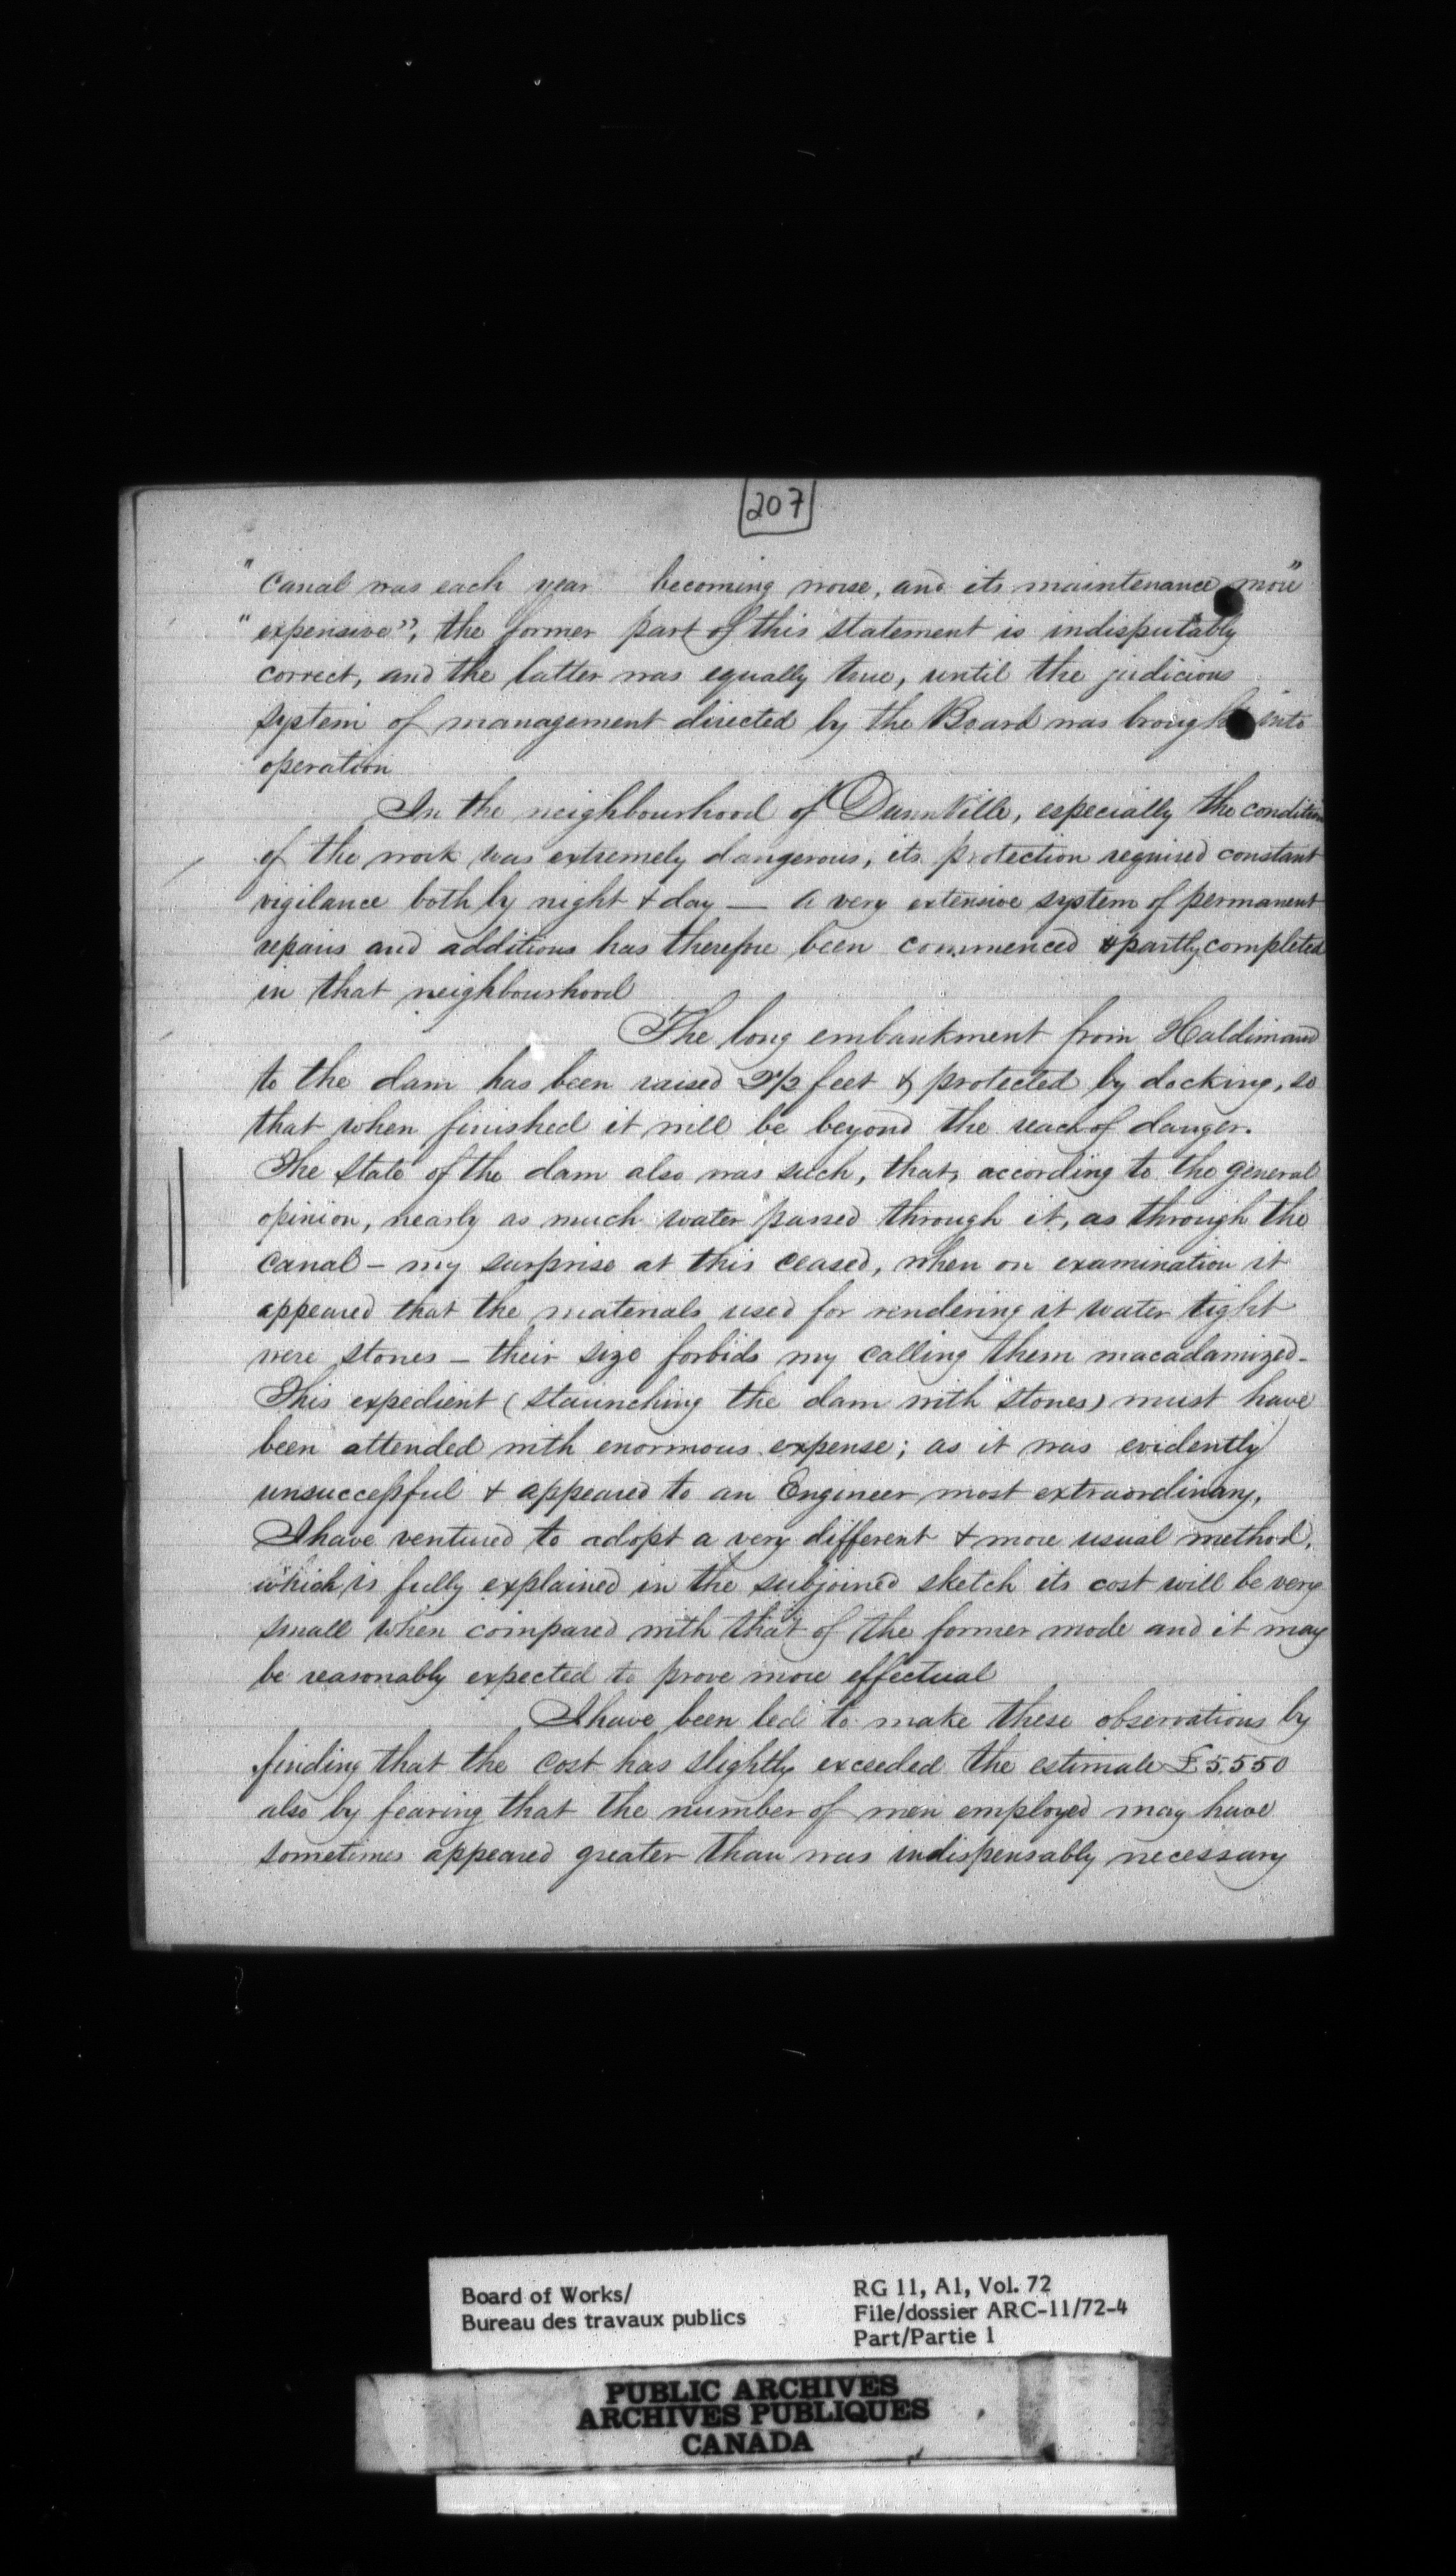 207
"canal was each year becoming worse, and its maintenance more"
"expensive", the former part of this statement is indisputably
correct, and the latter was equally true, until the judicious
system of management directed by the Board was brought into
operation
In the neighbourhood of DunnVille, especially the condition
of the work was extremely dangerous, its protection required constant
vigilance both by night & day — a very extensive system of permanent
repairs and additions has therefore been commenced & partly completed
in that neighbourhood
The long embankment from Haldimand
to the dam has been raised feet & protected by docking, so
that when finished it will be beyond the reach of danger.
The state of the dam also was such, that, according to the general
opinion, nearly as much water passed through it, as through the
canal – my surprise at this ceased, when on examination it
appeared that the materials used for rendering it water tight
were stones – their size forbids my calling them macadamized –
This expedient (staunching the dam with stones) must have
been attended with enormous expense; as it was evidently
unsuccessful & appeared to an Engineer most extraordinary,
I have ventured to adopt a very different & more usual method,
which is fully explained in the subjoined sketch its cost will be very
small when compared with that of the former mode and it may
be reasonably expected to prove more effectual
I have been led to make these observations by
finding that the cost has slightly exceeded the estimate £5.550
also by fearing that the number of men employed may have
sometimes appeared greater than was indispensably necessary
Board of Works/
Bureau des travaux publics
RG 11, A1, Vol. 72
File/dossier ARC-11/72-4
Part/Partie 1
PUBLIC ARCHIVES
ARCHIVES PUBLIQUES
CANADA